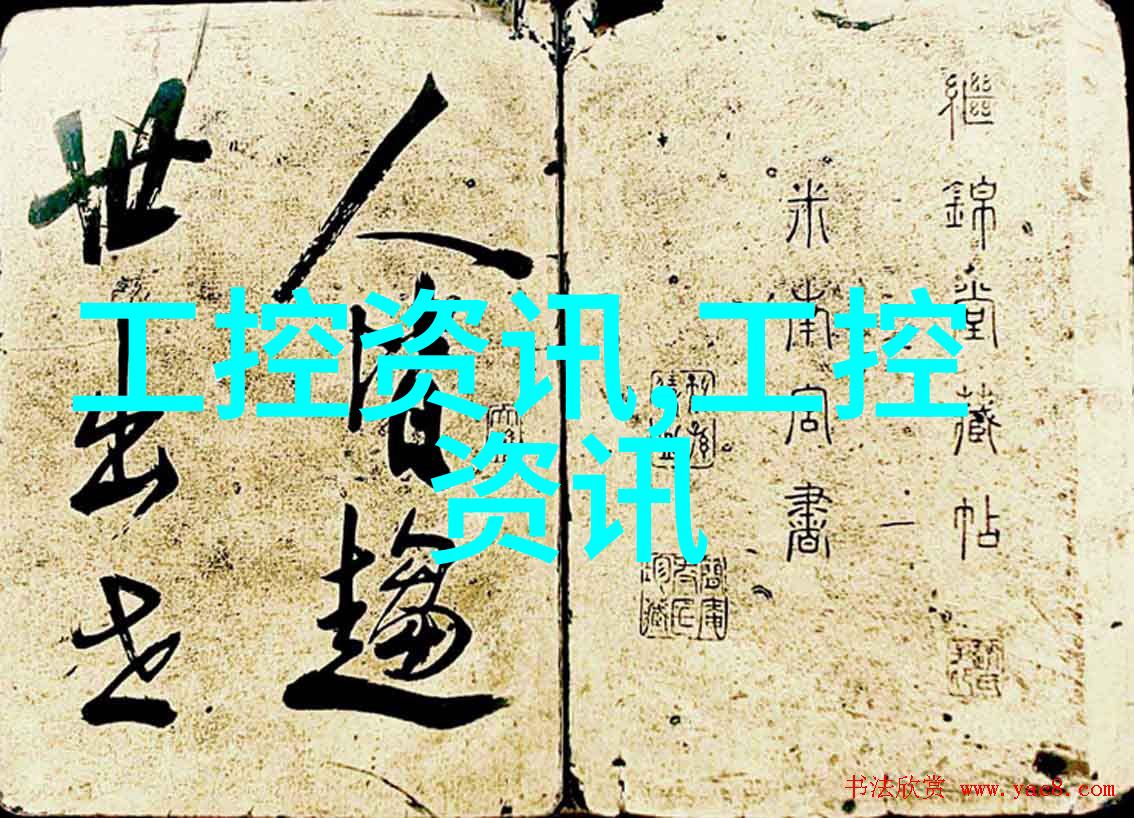 繼錦堂藏帖
米南宮書
一
人趨
世出
工控资讯,工控
资讯
书法欣赏 www.yac8.com